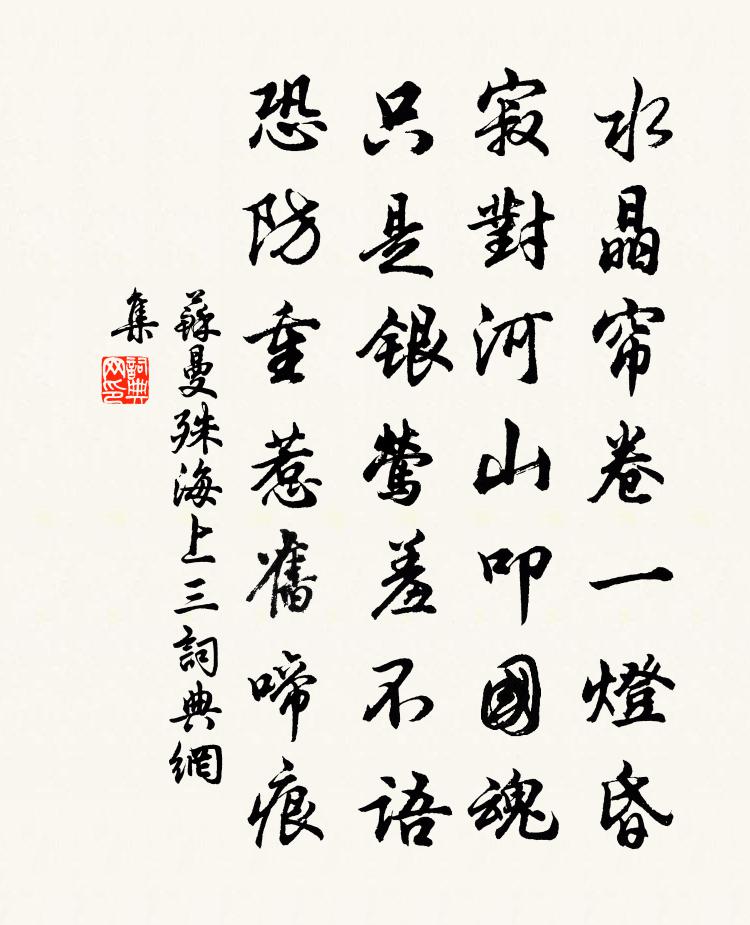 水晶帘卷一燈昏
寂對河山叩國魂
只是银鶯羞不语
恐防重惹舊啼痕
蘇曼殊海上三詞典網
集
詞典網印